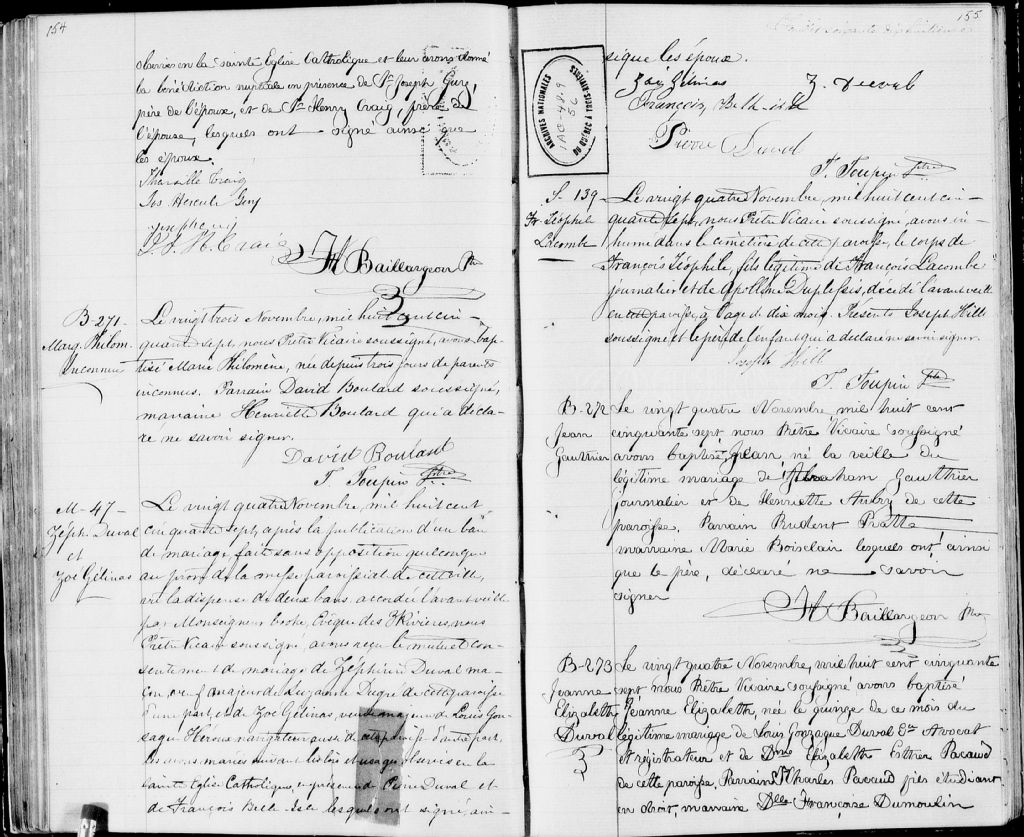 154
observées en la Sainte Eglise Catholique et leur avons donné
la bénédiction nuptiale en présence de Sr Joseph Gury,
père de l'époux, et de Sr Henry Craig, père de
l'épouse, lesquels ont signé ainsi que
les époux.
Tharsille Craig
Jos Hercule Gury
H. Craig
JH Baillargeon Ptre
B-271-
Marg. Philom.
Inconnue
Le vingt trois Novembre, mil huit cent cin-
quante sept, nous Prêtre Vicaire soussigné, avons bap-
tisé Marie Philomène, née depuis trois jours de parents
inconnus. Parrain David Boulard soussigné,
marraine Henriette Boulard qui a décla-
ré ne savoir signer.
David Boulard
T. Toupin Ptre
M-47-
Zéph. Duval
et
Zoé Gélinas
Le vingt quatre Novembre, mil huit cent
cinquante sept, après la publication d'un ban
de mariage, fait sans opposition quelconque
au prône de la messe paroissiale de cette ville,
vu la dispense de deux bans accordée l'avant veille
par Monseigneur Cooke, Evêque des 3 Rivières, nous
Prêtre Vicaire soussigné, avons reçu le mutuel con-
sentement de mariage de Zéphirin Duval ma-
çon, veuf majeur de Suzanne Dugré de cette paroisse
d'une part, et de Zoé Gélinas, veuve majeure de Louis Gon-
zague Héroux navigateur aussi de cette paroisse d'autre part,
les avons mariés suivant les lois et usages observés en la
Sainte Eglise Catholique, en présence de Pierre Duval et
de François Belle Isle lesquels ont signé, ain-
155
ARCHIVES NATIONALES
DU QUÉBEC À TROIS-RIVIÈRES
1AC-48-9
56
si que les époux.
Zoé Gélinas
Z. Duval
François Bellisle
Pierre Duval
T. Toupin Ptre
S-139-
Fr. Téophile
Lacombe
Le vingt quatre Novembre, mil huit cent cin-
quante sept, nous Prêtre Vicaire soussigné, avons in-
humé dans le cimetière de cette paroisse, le corps de
François Téophile, fils légitime de François Lacombe
journalier et de Apolline Duplessis, décédé l'avant veille
en cette paroisse, à l'age de dix mois. Présents Joseph Hill
soussigné et le père de l'enfant qui a déclaré ne savoir signer.
Joseph Hill
T. Toupin Ptre
B-272
Jean
Gauthier
Le vingt quatre Novembre mil huit cent
cinquante sept nous Prêtre Vicaire soussigné
avons baptisé Jean né la veille du
légitime mariage de Abraham Gautthier
journalier et de Henriette Aubry de cette
paroisse, Parrain Prudent Pratte
marraine Marie Boisclair lesquels ont ainsi
que le père, déclaré ne savoir
signer
JH Baillargeon Ptre
B-273
Jeanne
Elizabeth
Duval
Le vingt quatre Novembre, mil huit cent cinquante
sept nous Prêtre Vicaire soussigné avons baptisé
Jeanne Elizabeth, née le quinze de ce mois du
légitime mariage de Louis Gonzague Duval Er Avocat
et régistrateur et de Dme Elizabeth Esther Pacaud
de cette paroisse, Parrain Mr Charles Pacaud fils étudiant
en droit, marraine Dlle Françoise Dumoulin